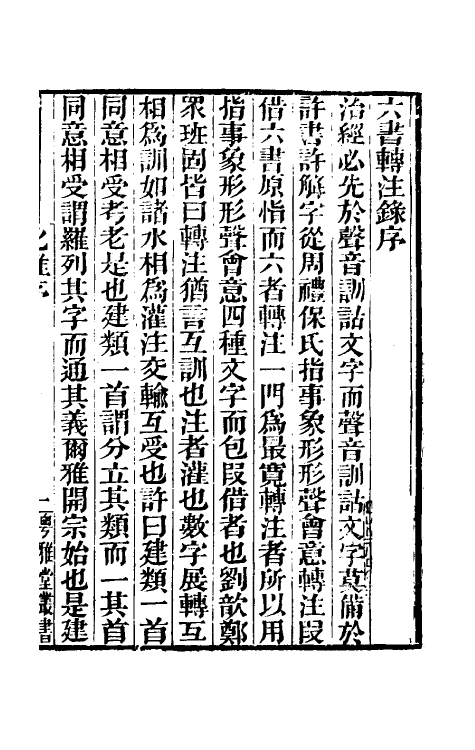 六書轉注錄序
治經必先於聲音訓詁文字而聲音訓詁文字莫備於
許書許解字從周禮保氏指事象形形聲會意轉注叚
借六書原恉而六者轉注一門爲最寬轉注者所以用
指事象形形聲會意四種文字而包叚借者也劉歆鄭
眾班固皆曰轉注猶言互訓也注者灌也數字展轉互
相爲訓如諸水相爲灌注交輸互受也許曰建類一首
同意相受考老是也建類一首謂分立其類而一其首
同意相受謂羅列其字而通其義爾雅開宗始也是建
序
一
粵雅堂叢書